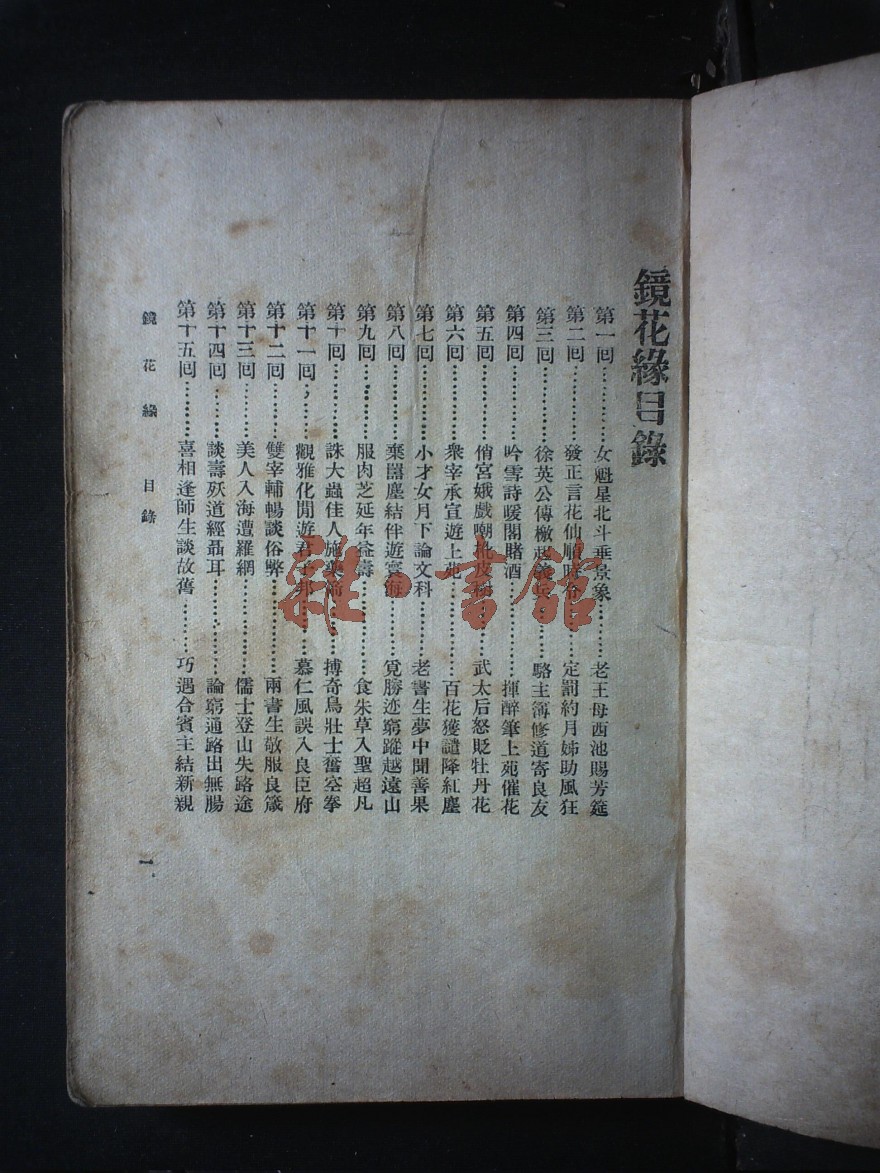 鏡花緣目錄
第一回…………女魁星北斗垂景象…………老王母西池賜芳筵
第二回…………發正言花仙順時令…………定罰約月姊助風狂
第三回…………徐英公傳檄起義兵…………駱主簿修道寄良友
第四回…………吟雪詩暖閣賭酒…………揮醉筆上苑催花
第五回…………俏宮娥戲嘲枇皮樹…………武太后怒貶牡丹花
第六回…………衆宰承宣遊上苑…………百花獲譴降紅塵
第七回…………小才女月下論文科…………老書生夢中聞善果
第八回…………棄囂塵結伴遊寰海…………覓勝迹窮蹤越遠山
第九回…………服肉芝延年益壽…………食朱草入聖超凡
第十回…………誅大蟲佳人施藥箭…………搏奇鳥壯士奮空拳
第十一回…………觀雅化閒遊君子邦…………慕仁風誤入良臣府
第十二回…………雙宰輔暢談俗弊…………兩書生敬服良箴
第十三回…………美人入海遭羅網…………儒士登山失路途
第十四回…………談壽殀道經聶耳…………論窮通路出無腸
第十五回…………喜相逢師生談故舊…………巧遇合賓主結新親
鏡花緣 目錄 一
雅·書館